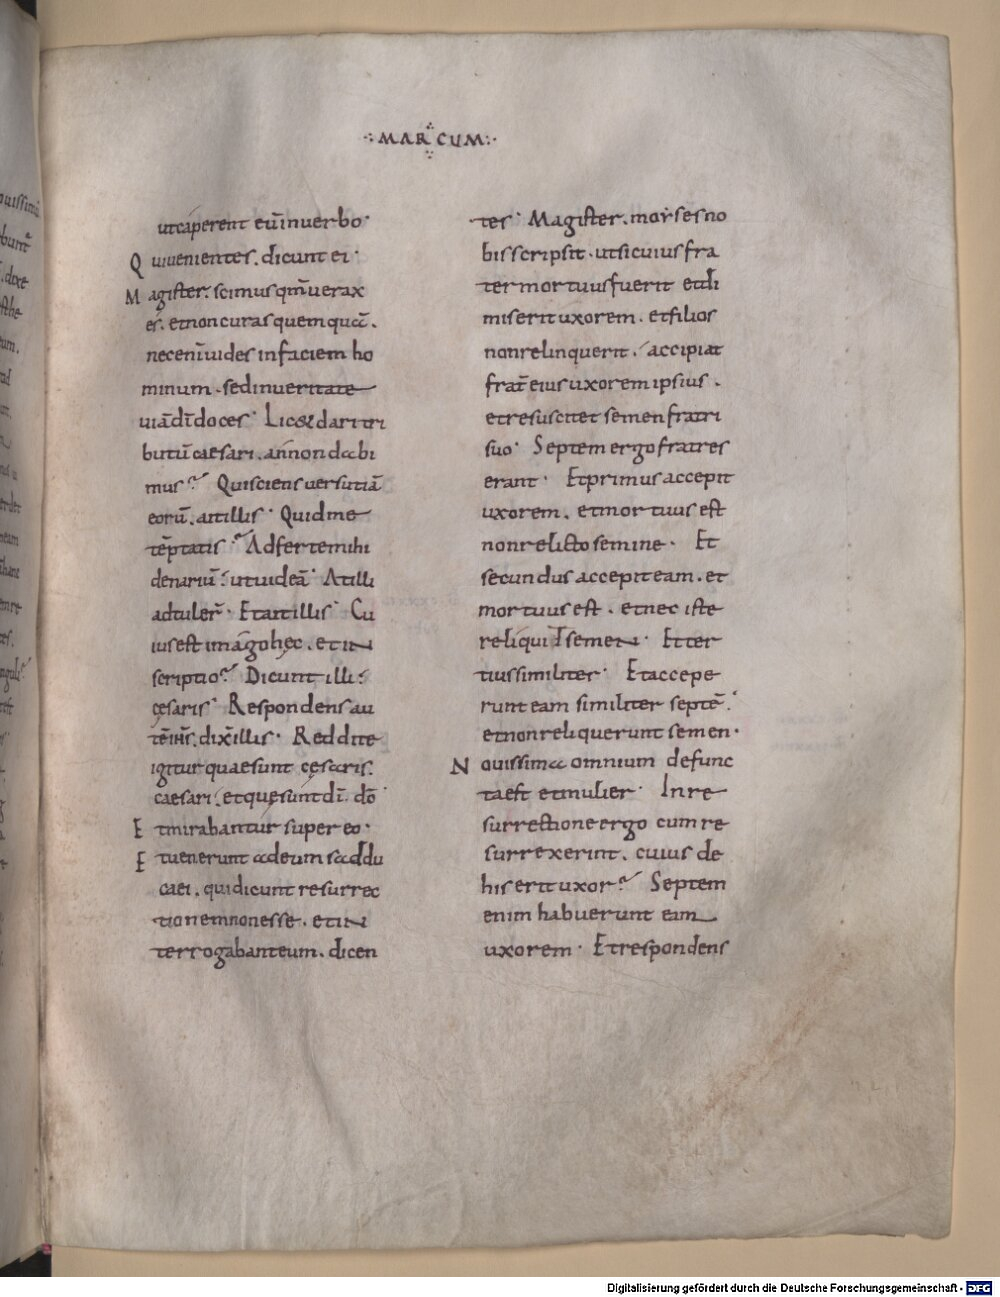 MARCUM
utcaperent eū inuerbo·
Qui uenientes. dicunt ei·
Magister. scimus qm̄ uerax
es. et non curas quemquā.
nec enī uides in faciem ho
minum. sed in ueritate
uiā dī doces· Licet dari tri
butū caesari. an non dabi
mus? Qui sciens uersutiā
eorū. ait illis· Quid me
tēptatis? Adferte mihi
denariū ut uideā· At illi
adtuler̄· Et ait illis· Cu
ius est imago hęc. et in
scriptio? Dicunt illi·
cęsaris· Respondens au
tē ihs̄. dix̄ illis· Reddite
igitur quae sunt cęsaris.
caesari. et quę sunt dī. dō·
Et mirabantur super eo·
Et uenerunt ad eum saddu
caei. qui dicunt resurrec
tionem non esse. et in
terrogabant eum. dicen
tes· Magister. moyses no
bis scripsit. ut si cuius fra
ter mortuus fuerit et di
miserit uxorem. et filios
non relinquerit. accipiat
frat̄ eius uxorem ipsius.
et resuscitet semen fratri
suo· Septem ergo fratres
erant· Et primus accepit
uxorem. et mortuus est
non relicto semine· Et
secundus accepit eam. et
mortuus est. et nec iste
reliquid semen· Et ter
tius similiter· Et accepe
runt eam similiter septē.
et non reliquerunt semen·
Nouissima omnium defunc
ta est et mulier· In re
surrectione ergo cum re
surrexerint. cuius de
his erit uxor? Septem
enim habuerunt eam
uxorem· Et respondens
Digitalisierung gefördert durch die Deutsche Forschungsgemeinschaft - DFG